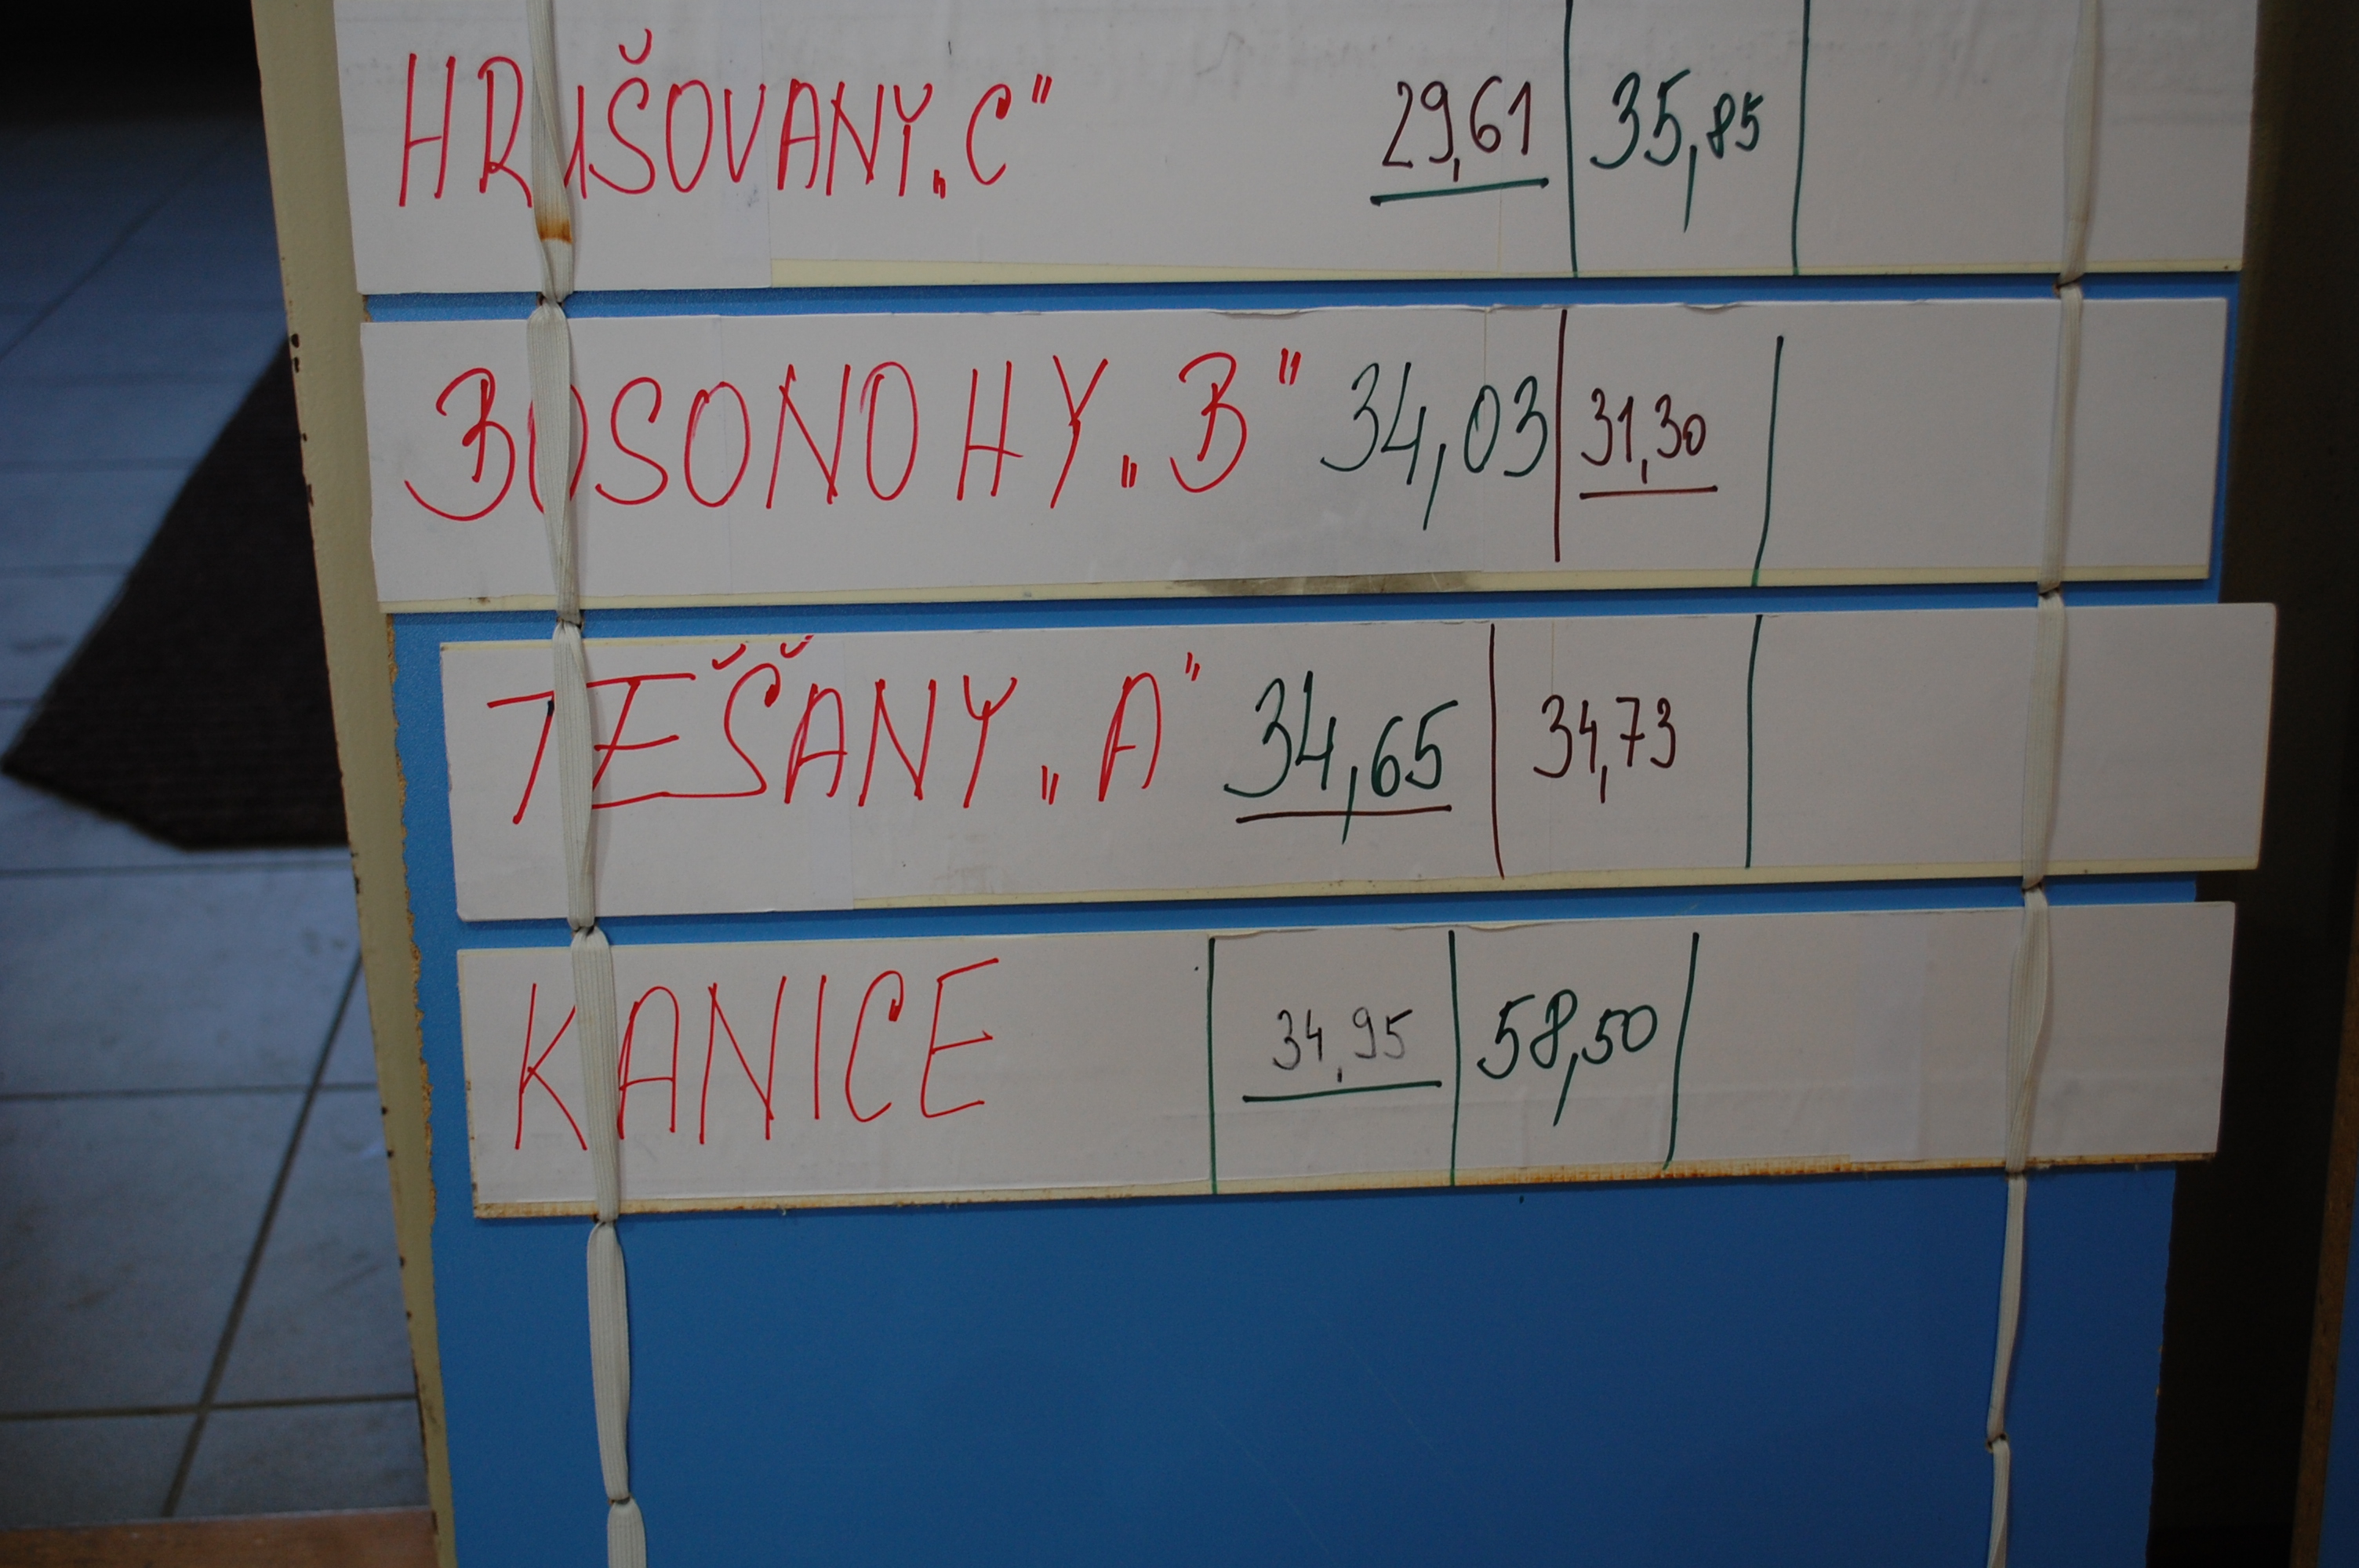 HRUŠOVANY „C" 29,61 35,85
BOSONOHY „B" 34,03 31,30
TĚŠANY „A" 34,65 34,73
KANICE 34,95 58,50